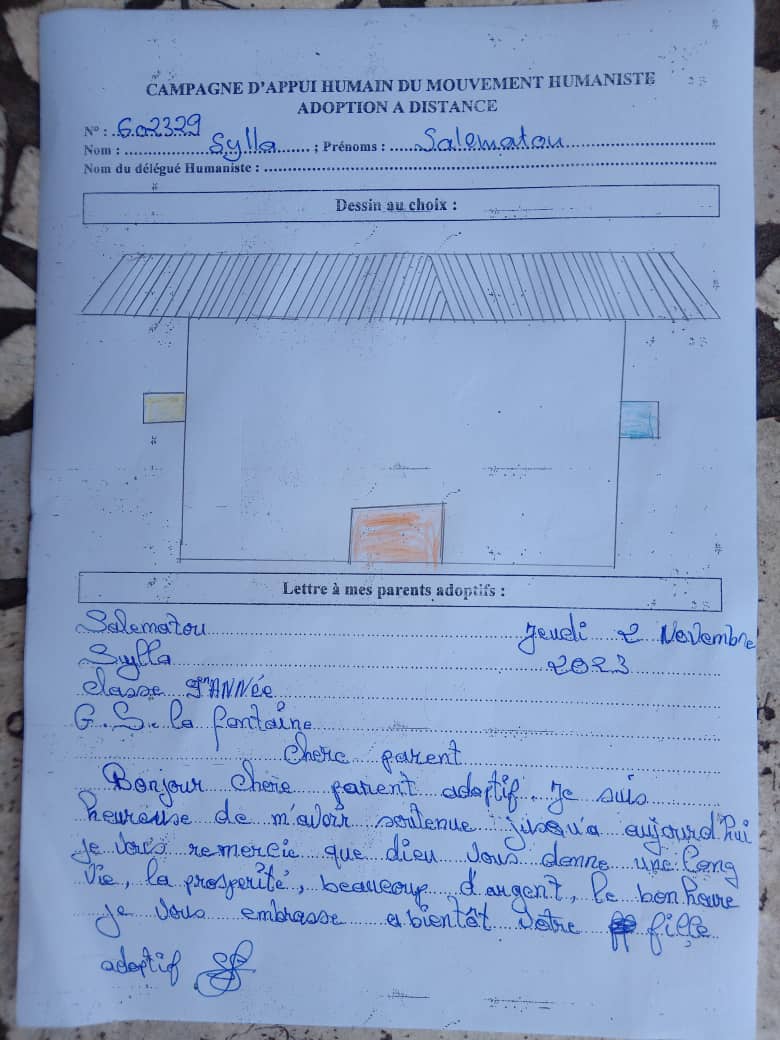 CAMPAGNE D'APPUI HUMAIN DU MOUVEMENT HUMANISTE
ADOPTION A DISTANCE
N° : 602329
Nom : Sylla ; Prénoms : Salematou
Nom du délégué Humaniste :
Dessin au choix :
Lettre à mes parents adoptifs :
Salematou Jeudi 2 Novembre
Sylla 2023
classe ANNée
G.S. la fontaine
chere parent
Bonjour chere parent adoptif. Je suis
heureuse de m'avoir soutenue jusqu'a aujourd'hui
je vous remercie que dieu vous donne une long
vie, la prosperité, beaucoup d'argent, le bonheure
je vous embrasse a bientôt votre fille
adoptif